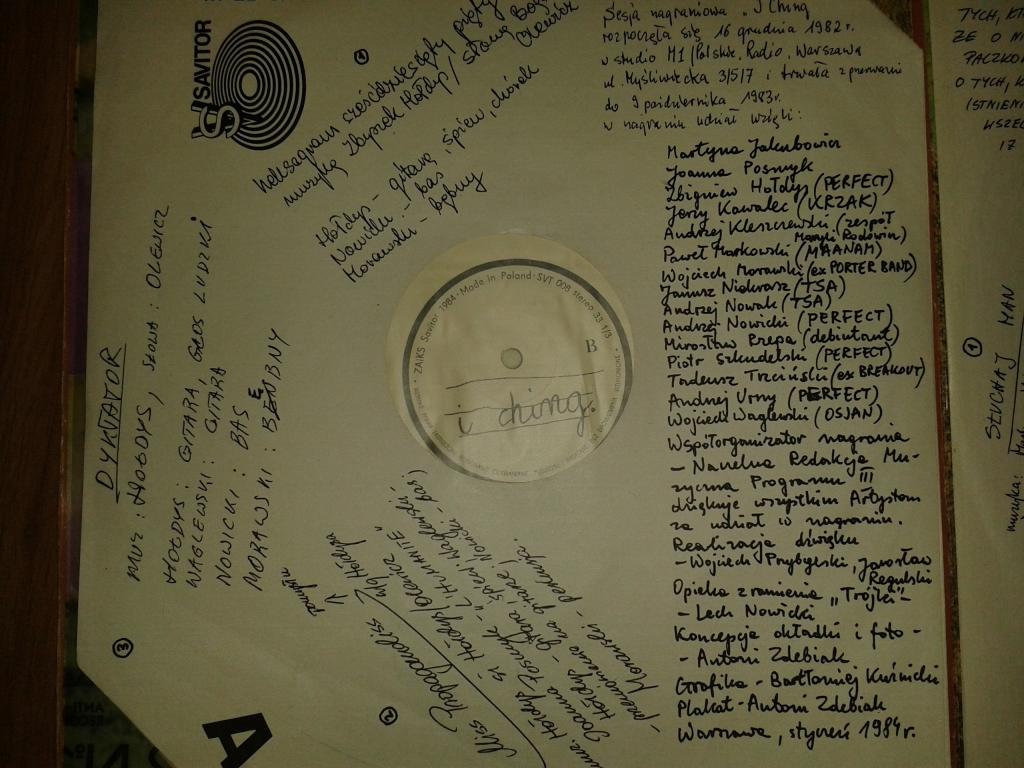 SAVITOR
Sesja nagraniowa "I Ching
rozpoczęła się 16 grudnia 1982r.
w studio M1/Polskie Radio, Warszawa
ul. Myśliwiecka 3/5/7 i trwała z przerwami
do 9 października 1983r.
w nagraniu udział wzięli:
Martyna Jakubowicz
Joanna Posmyk
Zbigniew Hołdys (PERFECT)
Jerzy Kawalec (KRZAK)
Andrzej Kleszczewski (zespół
Maryli Rodowicz)
Paweł Markowski (MAANAM)
Wojciech Morawski (ex PORTER BAND)
Janusz Niekrasz (TSA)
Andrzej Nowak (TSA)
Andrzej Nowicki (PERFECT)
Mirosław Rzepa (debiutant)
Piotr Szkudelski (PERFECT)
Tadeusz Trzciński (ex BREAKOUT)
Andrzej Urny (PERFECT)
Wojciech Waglewski (OSJAN)
Współorganizator nagrania
- Naczelna Redakcja Mu-
zyczna Programu III
dziękuje wszystkim Artystom
za udział w nagraniu.
Realizacja dźwięku
- Wojciech Przybylski, Jarosław
Regulski
Opieka z ramienia "Trójki" -
- Lech Nowicki
Koncepcja okładki i foto -
- Antoni Zdebiak
Grafika - Bartłomiej Kuźnicki
Plakat - Antoni Zdebiak
Warszawa, styczeń 1984r.
4
heksagram sześćdziesiąty piąty
muzyka Zbyszek Hołdys / słowa Bogdan
Olewicz
Hołdys - gitara, śpiew, chórek
Nowicki - bas
Morawski - bębny
3
DYKTATOR
MUZ: HOŁDYS, SŁOWA: OLEWICZ
HOŁDYS: GITARA, GŁOS LUDZKI
WAGLEWSKI: GITARA
NOWICKI: BAS
MORAWSKI: BĘBNY
2
Miss Propagandiss
Made in Poland · SVT 008 stereo 33 1/3
ZAIKS Savitor 1984
B
i ching.
A
TYCH, KT
ŻE O NI
PACZKO
O TYCH, K
ISTNIENI
WSZEC
17
1
SŁUCHAJ MAN
muzyka: